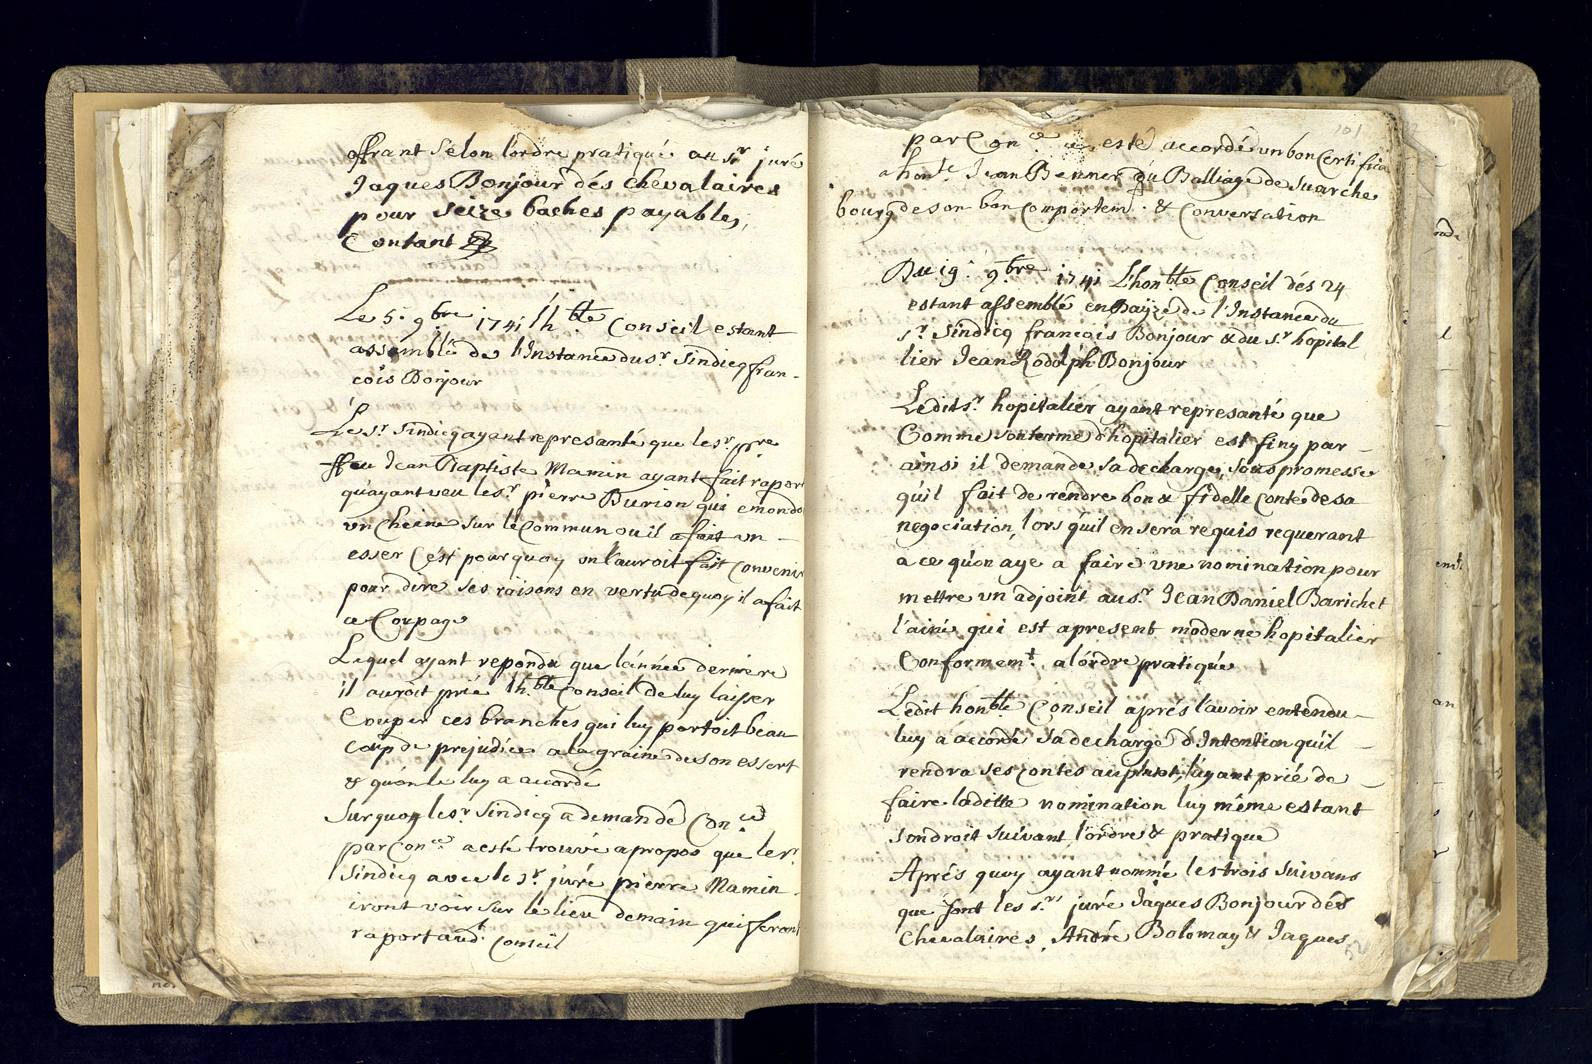 offrant Selon l'ordre pratiqué au Sr juré
Jaques Bonjour dés Chevalaires
pour Seize baches payables,
Contant
Le 5. 9bre 1741 lh.ble Conseil estant
assemblé de l'Instance du sr. Sindicq fran-
cois Bonjour
Le sr. Sindicq ayant represanté que le sr. pre
ffeu Jean Baptiste Mamin ayant fait raport
qu'ayant veu le sr. pierre Burion qui emondo
un Cheine sur le Commun ou il a fait un -
esser C'est pourquoy on l'auroit fait Convenir
pour dire Ses raisons en vertu de quoy il a fait
ce Coupage
Lequel ayant repondu que lánnée derniere
il auroit prié lh.ble Conseil de luy laisser
Couper ces branches qui luy portoit beau
coup de prejudice a la graine de son essert
& qu'on le luy a accordé
Sur quoy le sr Sindicq a demandé Con.ce
par Con.ce a esté trouvé apropos que le sr.
Sindicq avec le sr. juré pierre Mamin -
iront voir sur le lieu demain qui feront
raport aud.t Conseil
101
par Con.ce a esté accordé un bon Certifica
a hon.te Jean Benner du Balliage de Suarche
bourg de son bon Comportem.t & Conversation
Du 19.e 9.bre 1741 L'hon.ble Conseil dés 24
estant assemblé en Payze de l'Instance du
sr. Sindicq francois Bonjour & du sr. hopital
lier Jean Rodolph Bonjour
Ledit sr. hopitalier ayant represanté que
Comme son terme d'hopitalier est finy par -
ainsi il demande sa decharge, sous promesse
qu'il fait de rendre bon & fidelle conte de sa
negociation, lors qu'il en sera requis requerant
a ce qu'on aye a faire une nomination pour
mettre un adjoint au sr. Jean Daniel Barichet
l'ainé qui est apresent moderne hopitalier
Conformem.t a l'ordre pratiqué
Ledit hon.ble Conseil aprés l'avoir entendu -
luy a accordé Sa decharge d'Intention qu'il -
rendra ses contes au plutot, l'ayant prié de -
faire laditte nomination luy même estant
son droit suivant l'ordre & pratique
Aprés quoy ayant nommé les trois Suivans
que sont les s.rs juré Jaques Bonjour dés
Chevalaires, André Bolomay & Jaques
52